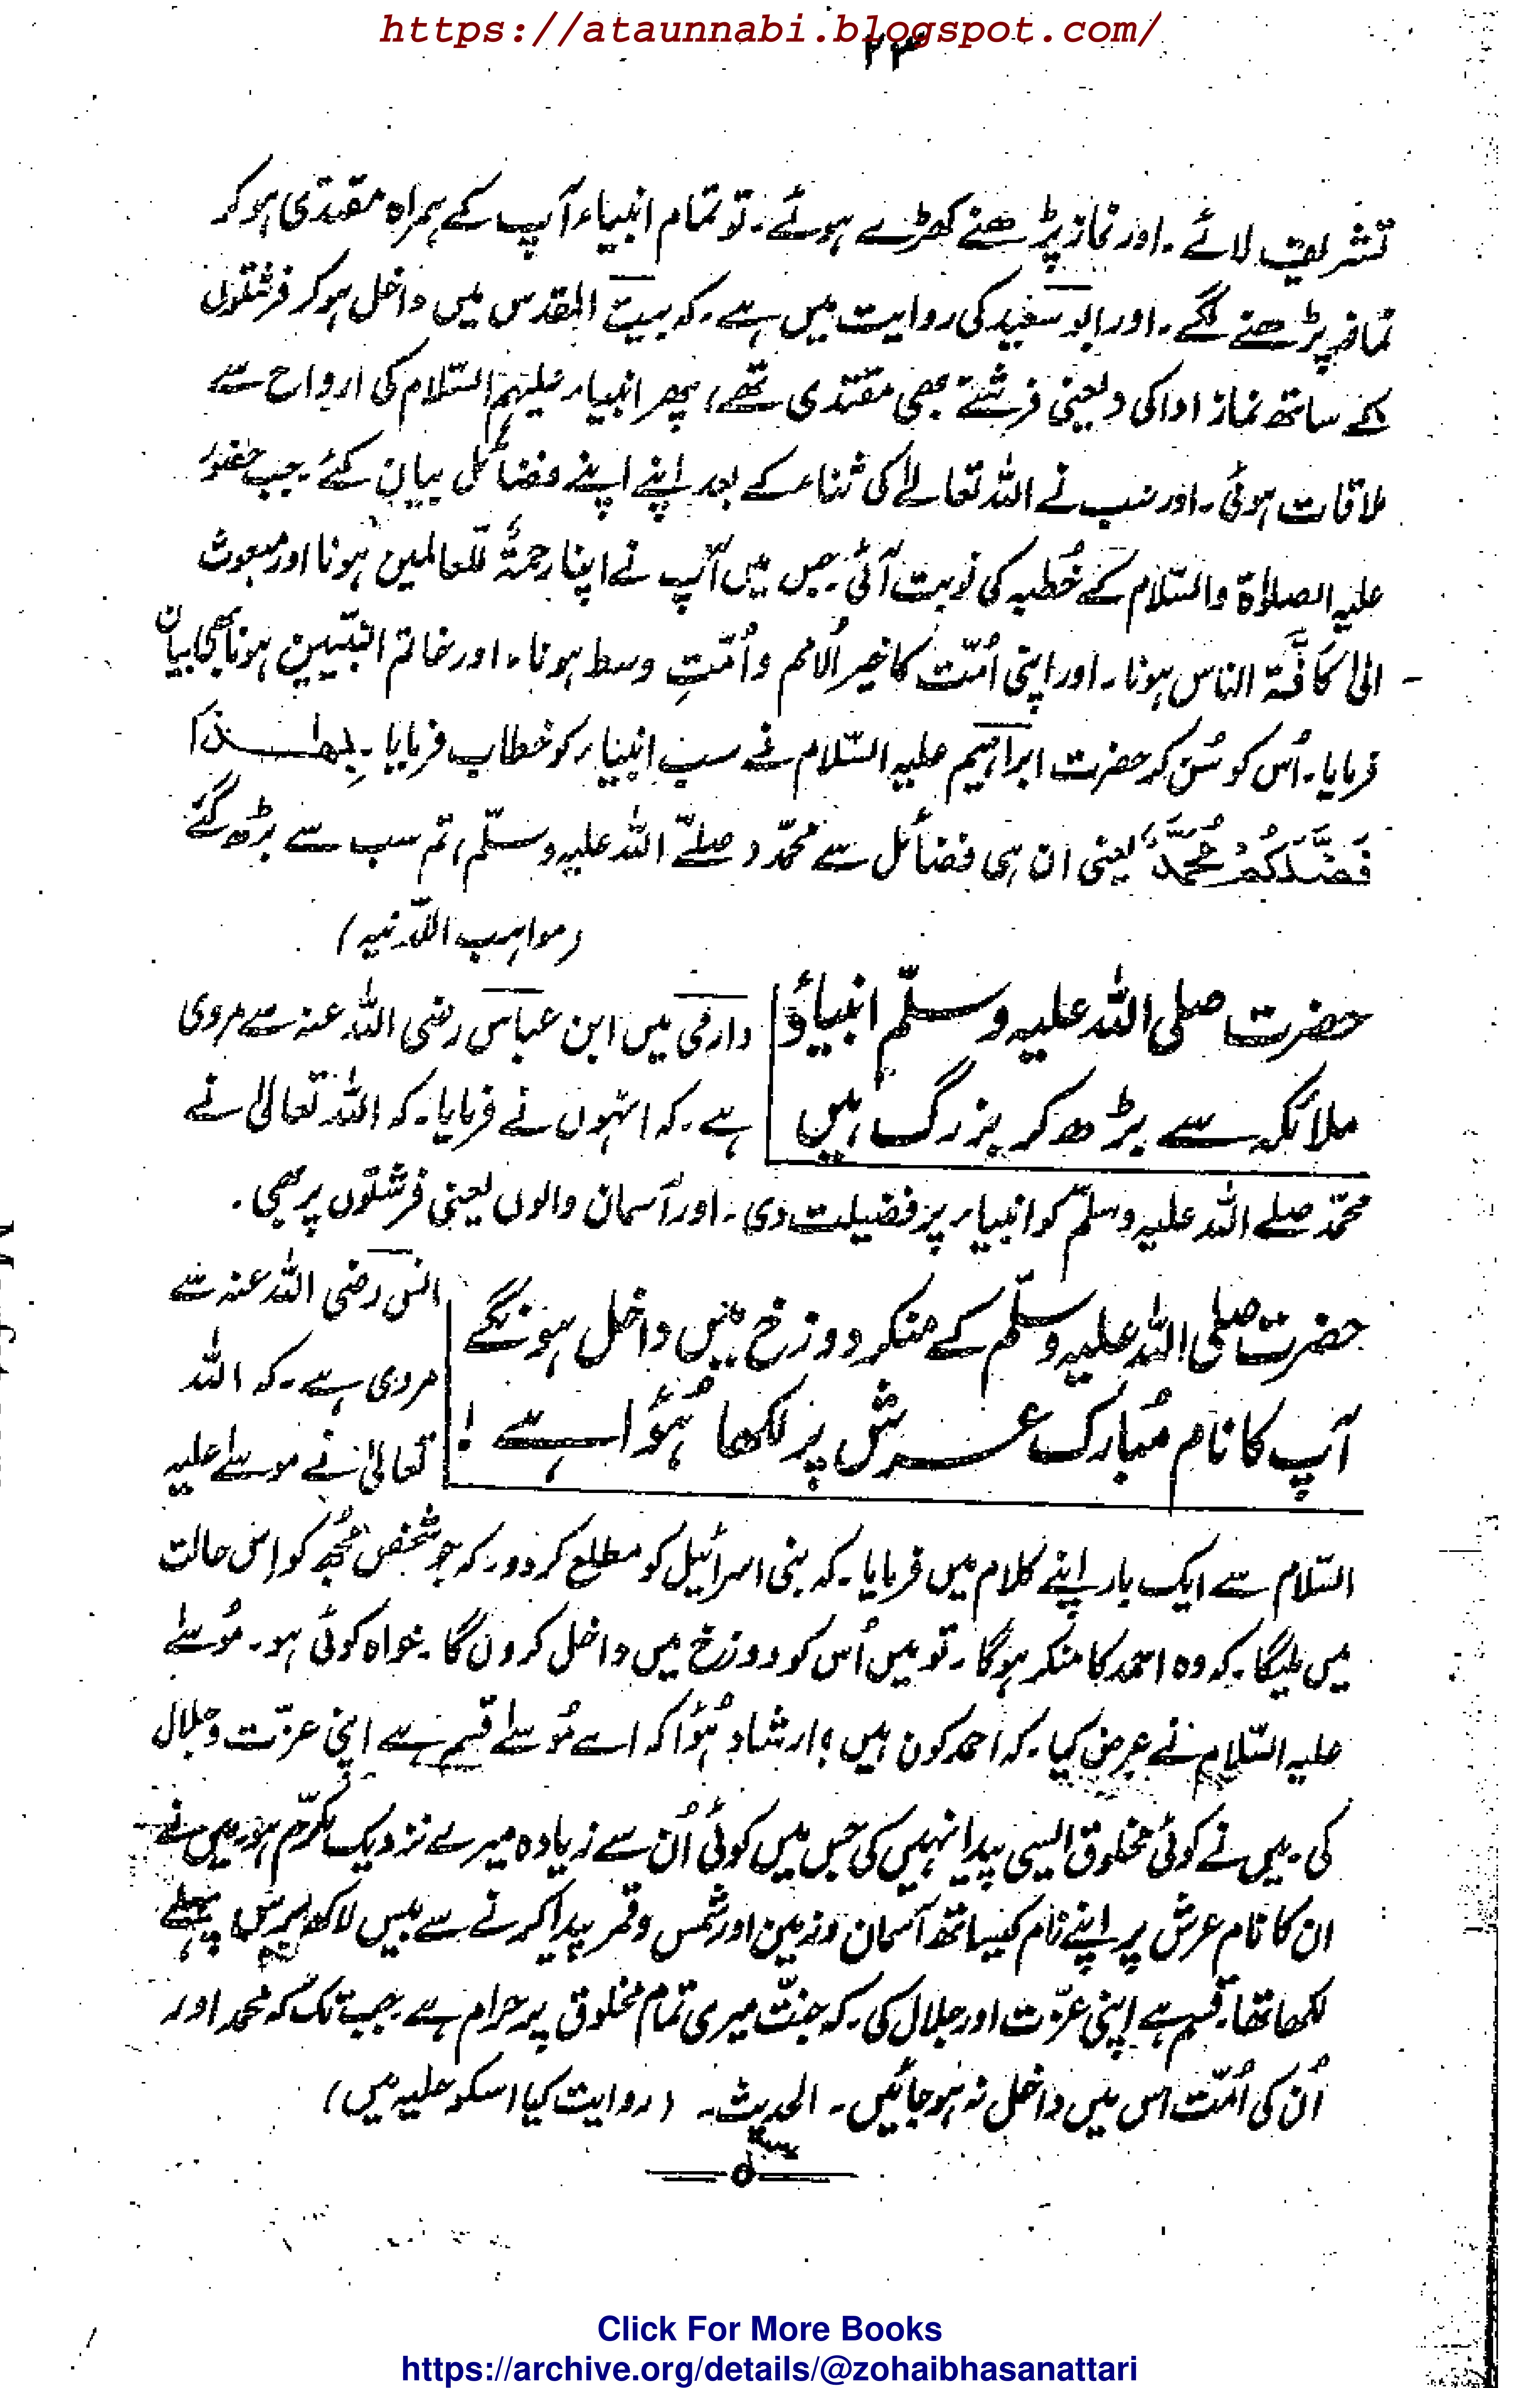 https://ataunnabi.blogspot.com/
۲۳
تشریف لائے ۔ اور نماز پڑھنے کھڑے ہوئے ۔ تو تمام انبیاء آپ کے ہمراہ مقتدی ہو کر
نماز پڑھنے لگے ۔ اور ابو سعید کی روایت میں ہے ۔ کہ بیت المقدس میں داخل ہو کر فرشتوں
کے ساتھ نماز ادا کی (یعنی فرشتے بھی مقتدی تھے) پھر انبیاء علیہم السّلام کی ارواح سے
ملاقات ہوئی ۔ اور سب نے اللہ تعالےٰ کی ثناء کے بعد اپنے اپنے فضائل بیان کئے ۔ جب حضور
علیہ الصلوٰۃ والسّلام کے خُطبہ کی نوبت آئی ۔ جس میں آپ نے اپنا رحمۃً لّلعالمین ہونا اور مبعوث
الیٰ کَافَّۃ الناس ہونا ۔ اور اپنی اُمّت کا خیر الُامم و اُمّتِ وسط ہونا ۔ اور خاتم النبّیین ہونا بھی بیان
فرمایا ۔ اُس کو سُن کر حضرت ابراہیم علیہ السّلام نے سب انبیاء کو خطاب فرمایا ۔ بِھٰذَا
فَضَّلَکُمْ مُحَمَّدٌ یعنی ان ہی فضائل سے محمّد (صلےّ اللہ علیہ وسلّم) تم سب سے بڑھ گئے
(مواہب اللّدنیہ)
حضرت صلی اللہ علیہ وسلّم انبیاؤ
ملائکہ سے بڑھ کر بزرگ ہیں
دارمی میں ابن عبّاس رضی اللہ عنہ سے مروی
ہے ۔ کہ انہوں نے فرمایا ۔ کہ اللہ تعالیٰ نے
محمّد صلے اللہ علیہ وسلّم کو انبیاء پر فضیلت دی ۔ اور آسمان والوں یعنی فرشتوں پر بھی ۔
حضرت صلی اللہ علیہ وسلّم کے منکر دوزخ میں داخل ہونگے
آپ کا نام مُبارک عرش پر لکھا ہُؤا ہے !
انس رضی اللہ عنہ سے
مروی ہے ۔ کہ اللہ
تعالیٰ نے موسےٰ علیہ
السّلام سے ایک بار اپنے کلام میں فرمایا ۔ کہ بنی اسرائیل کو مطلع کر دو ۔ کہ جو شخص مجُھ کو اِس حالت
میں ملیگا ۔ کہ وہ احمد کا منکر ہوگا ۔ تو میں اُس کو دوزخ میں داخل کروں گا ۔ خواہ کوئی ہو ۔ مُوسےٰ
علیہ السّلام نے عرض کیا ۔ کہ احمد کون ہیں ؟ ارشاد ہُؤا کہ اے مُوسےٰ قسم ہے اپنی عزّت و جلال
کی ۔ میں نے کوئی مخلوق ایسی پیدا نہیں کی جس میں کوئی اُن سے زیادہ میرے نزدیک مُکرّم ہو ۔ میں نے
ان کا نام عرش پر اپنے نام کیساتھ آسمان و زمین اور شمس و قمر پیدا کرنے سے بیس لاکھ برس پہلے
لکھا تھا ۔ قسم ہے اپنی عزّت اور جلال کی ۔ کہ جنّت میری تمام مخلوق پر حرام ہے ۔ جب تک کہ محمد اور
اُن کی اُمّت اس میں داخل نہ ہو جائیں ۔ الحدیث ۔ (روایت کیا اسکو حلیہ میں)
Click For More Books
https://archive.org/details/@zohaibhasanattari